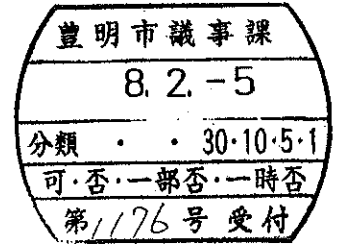 豊明市議事課
8. 2. -5
分類 ・ ・ 30・10・5・1
可・否・一部否・一時否
第1176号受付